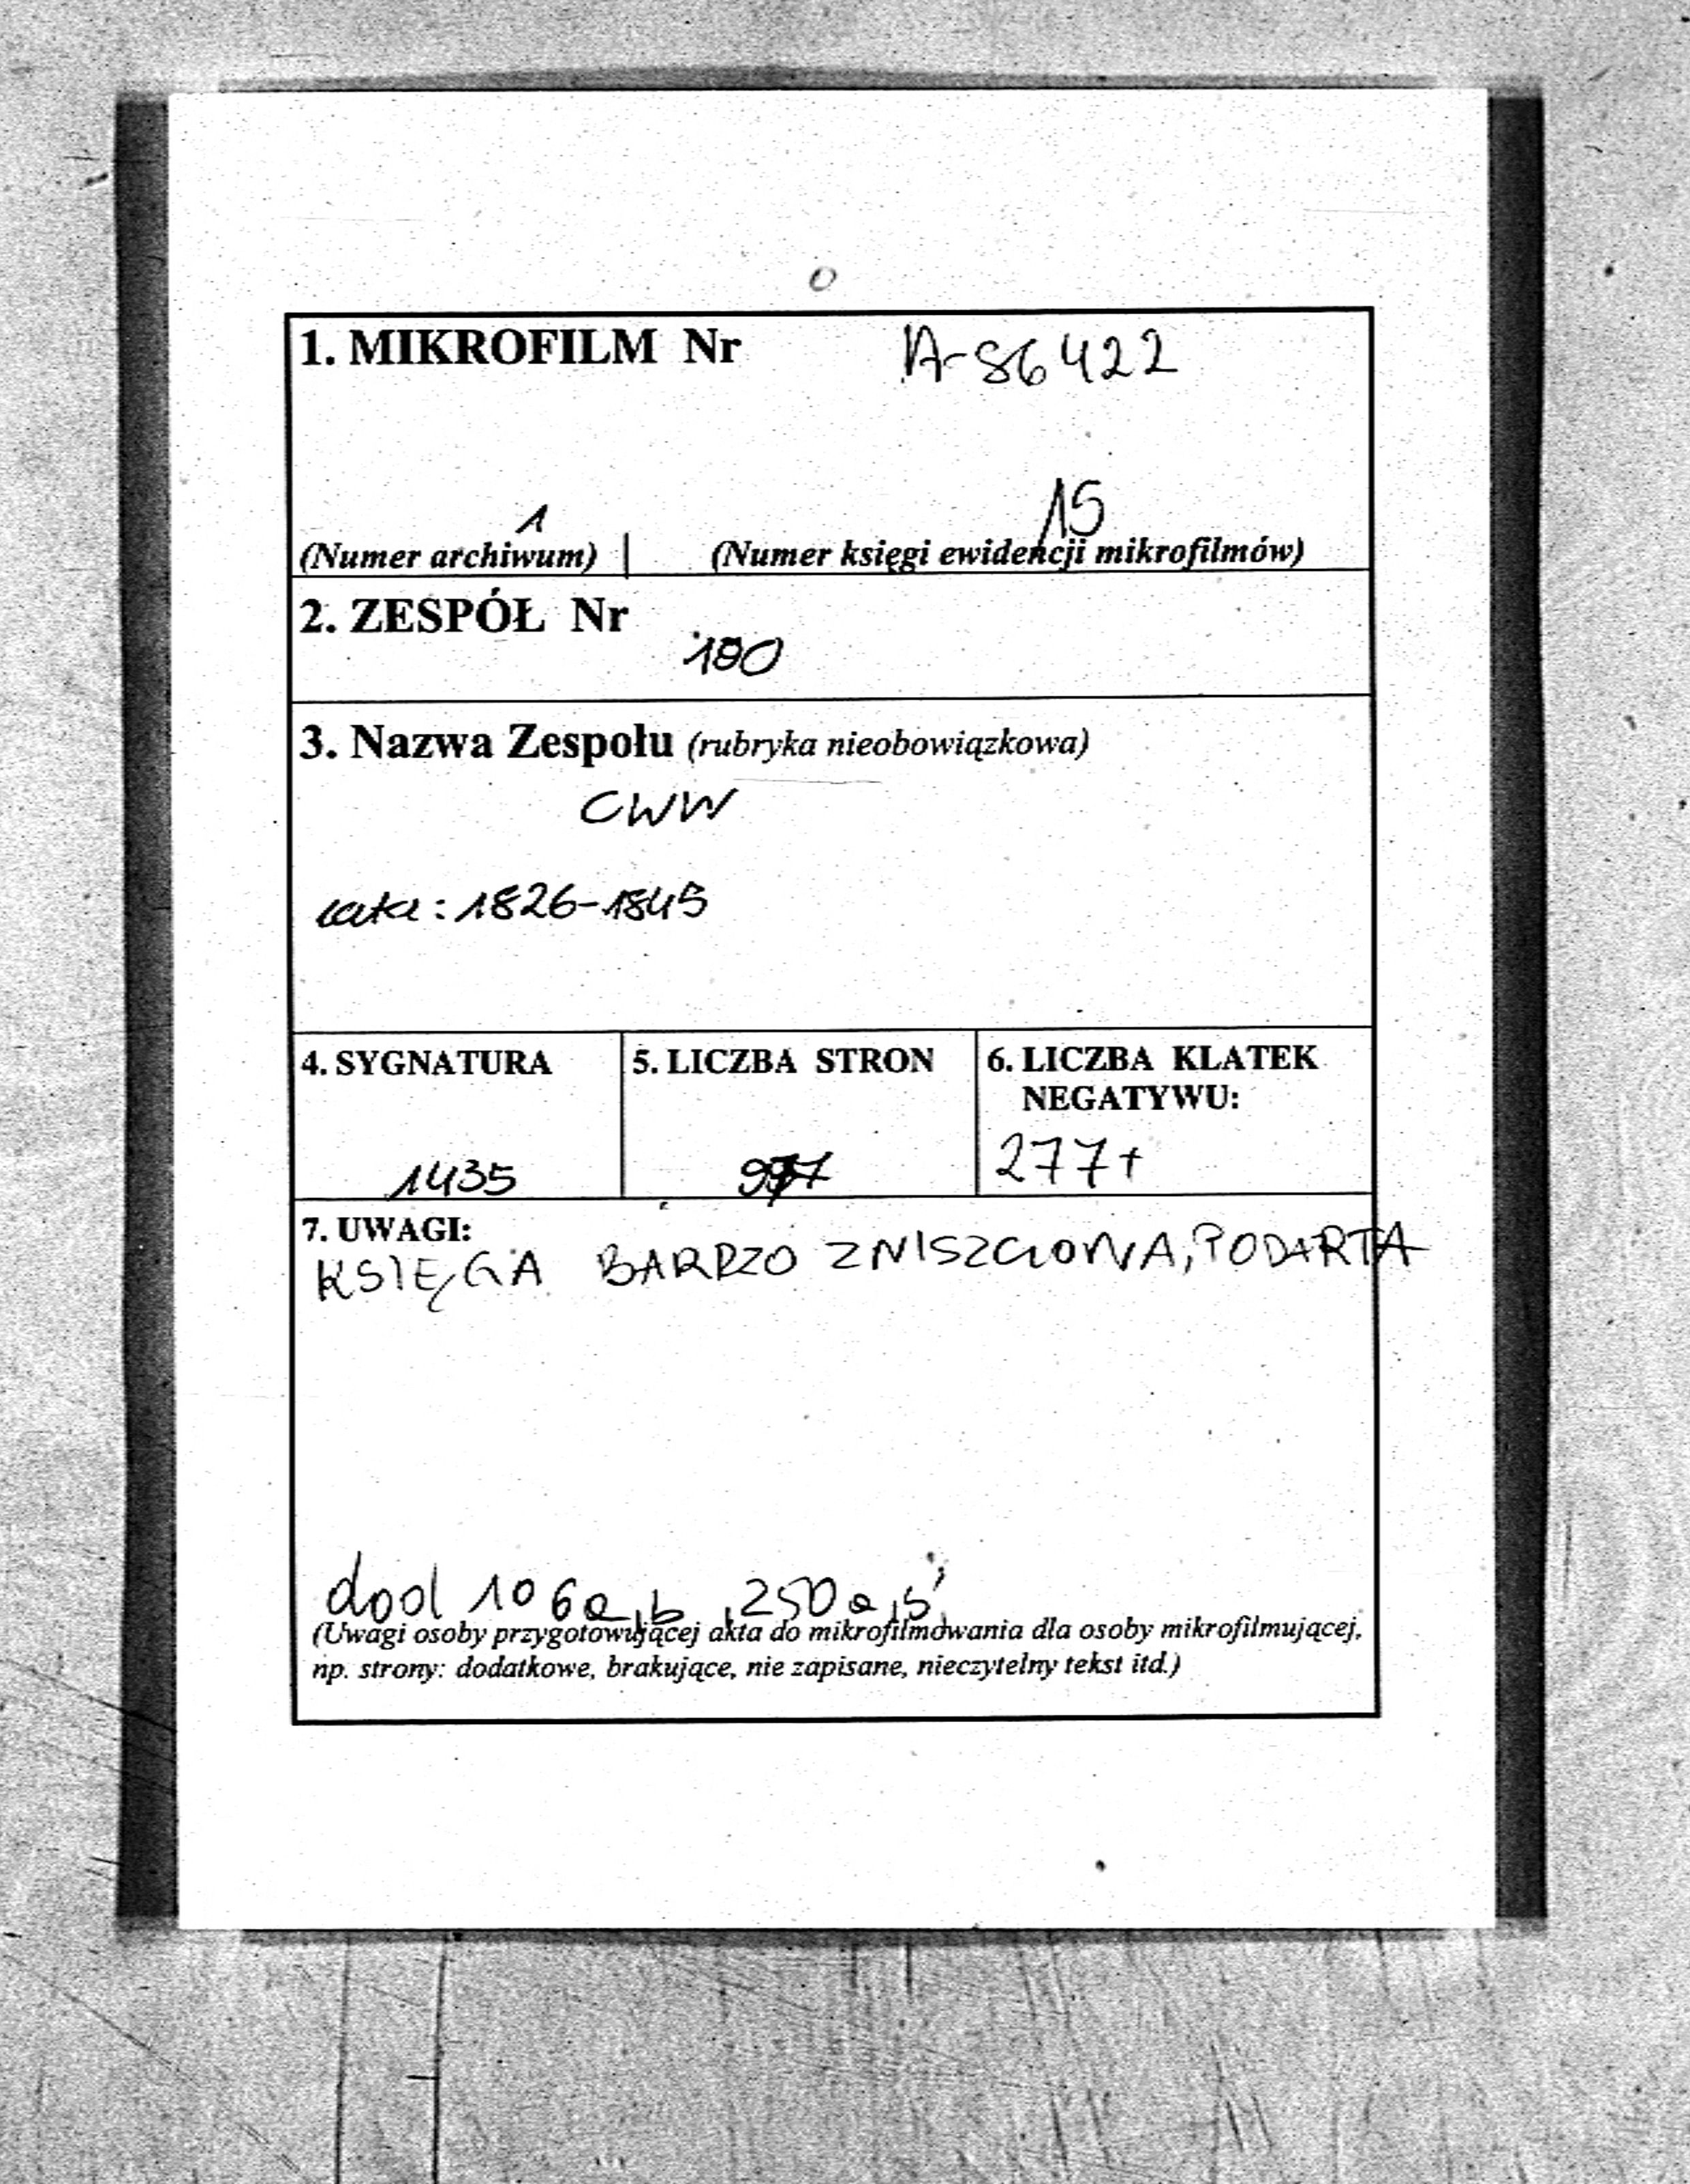 1. MIKROFILM Nr A-86422
1 15
(Numer archiwum) | (Numer księgi ewidencji mikrofilmów)
2. ZESPÓŁ Nr
180
3. Nazwa Zespołu (rubryka nieobowiązkowa)
CWW
lata: 1826-1845
4. SYGNATURA 5. LICZBA STRON 6. LICZBA KLATEK
NEGATYWU:
1435 277+
7. UWAGI:
KSIĘGA BARDZO ZNISZCZONA, PODARTA
dod 106a,b, 250a,b
(Uwagi osoby przygotowującej akta do mikrofilmowania dla osoby mikrofilmującej,
np. strony: dodatkowe, brakujące, nie zapisane, nieczytelny tekst itd.)